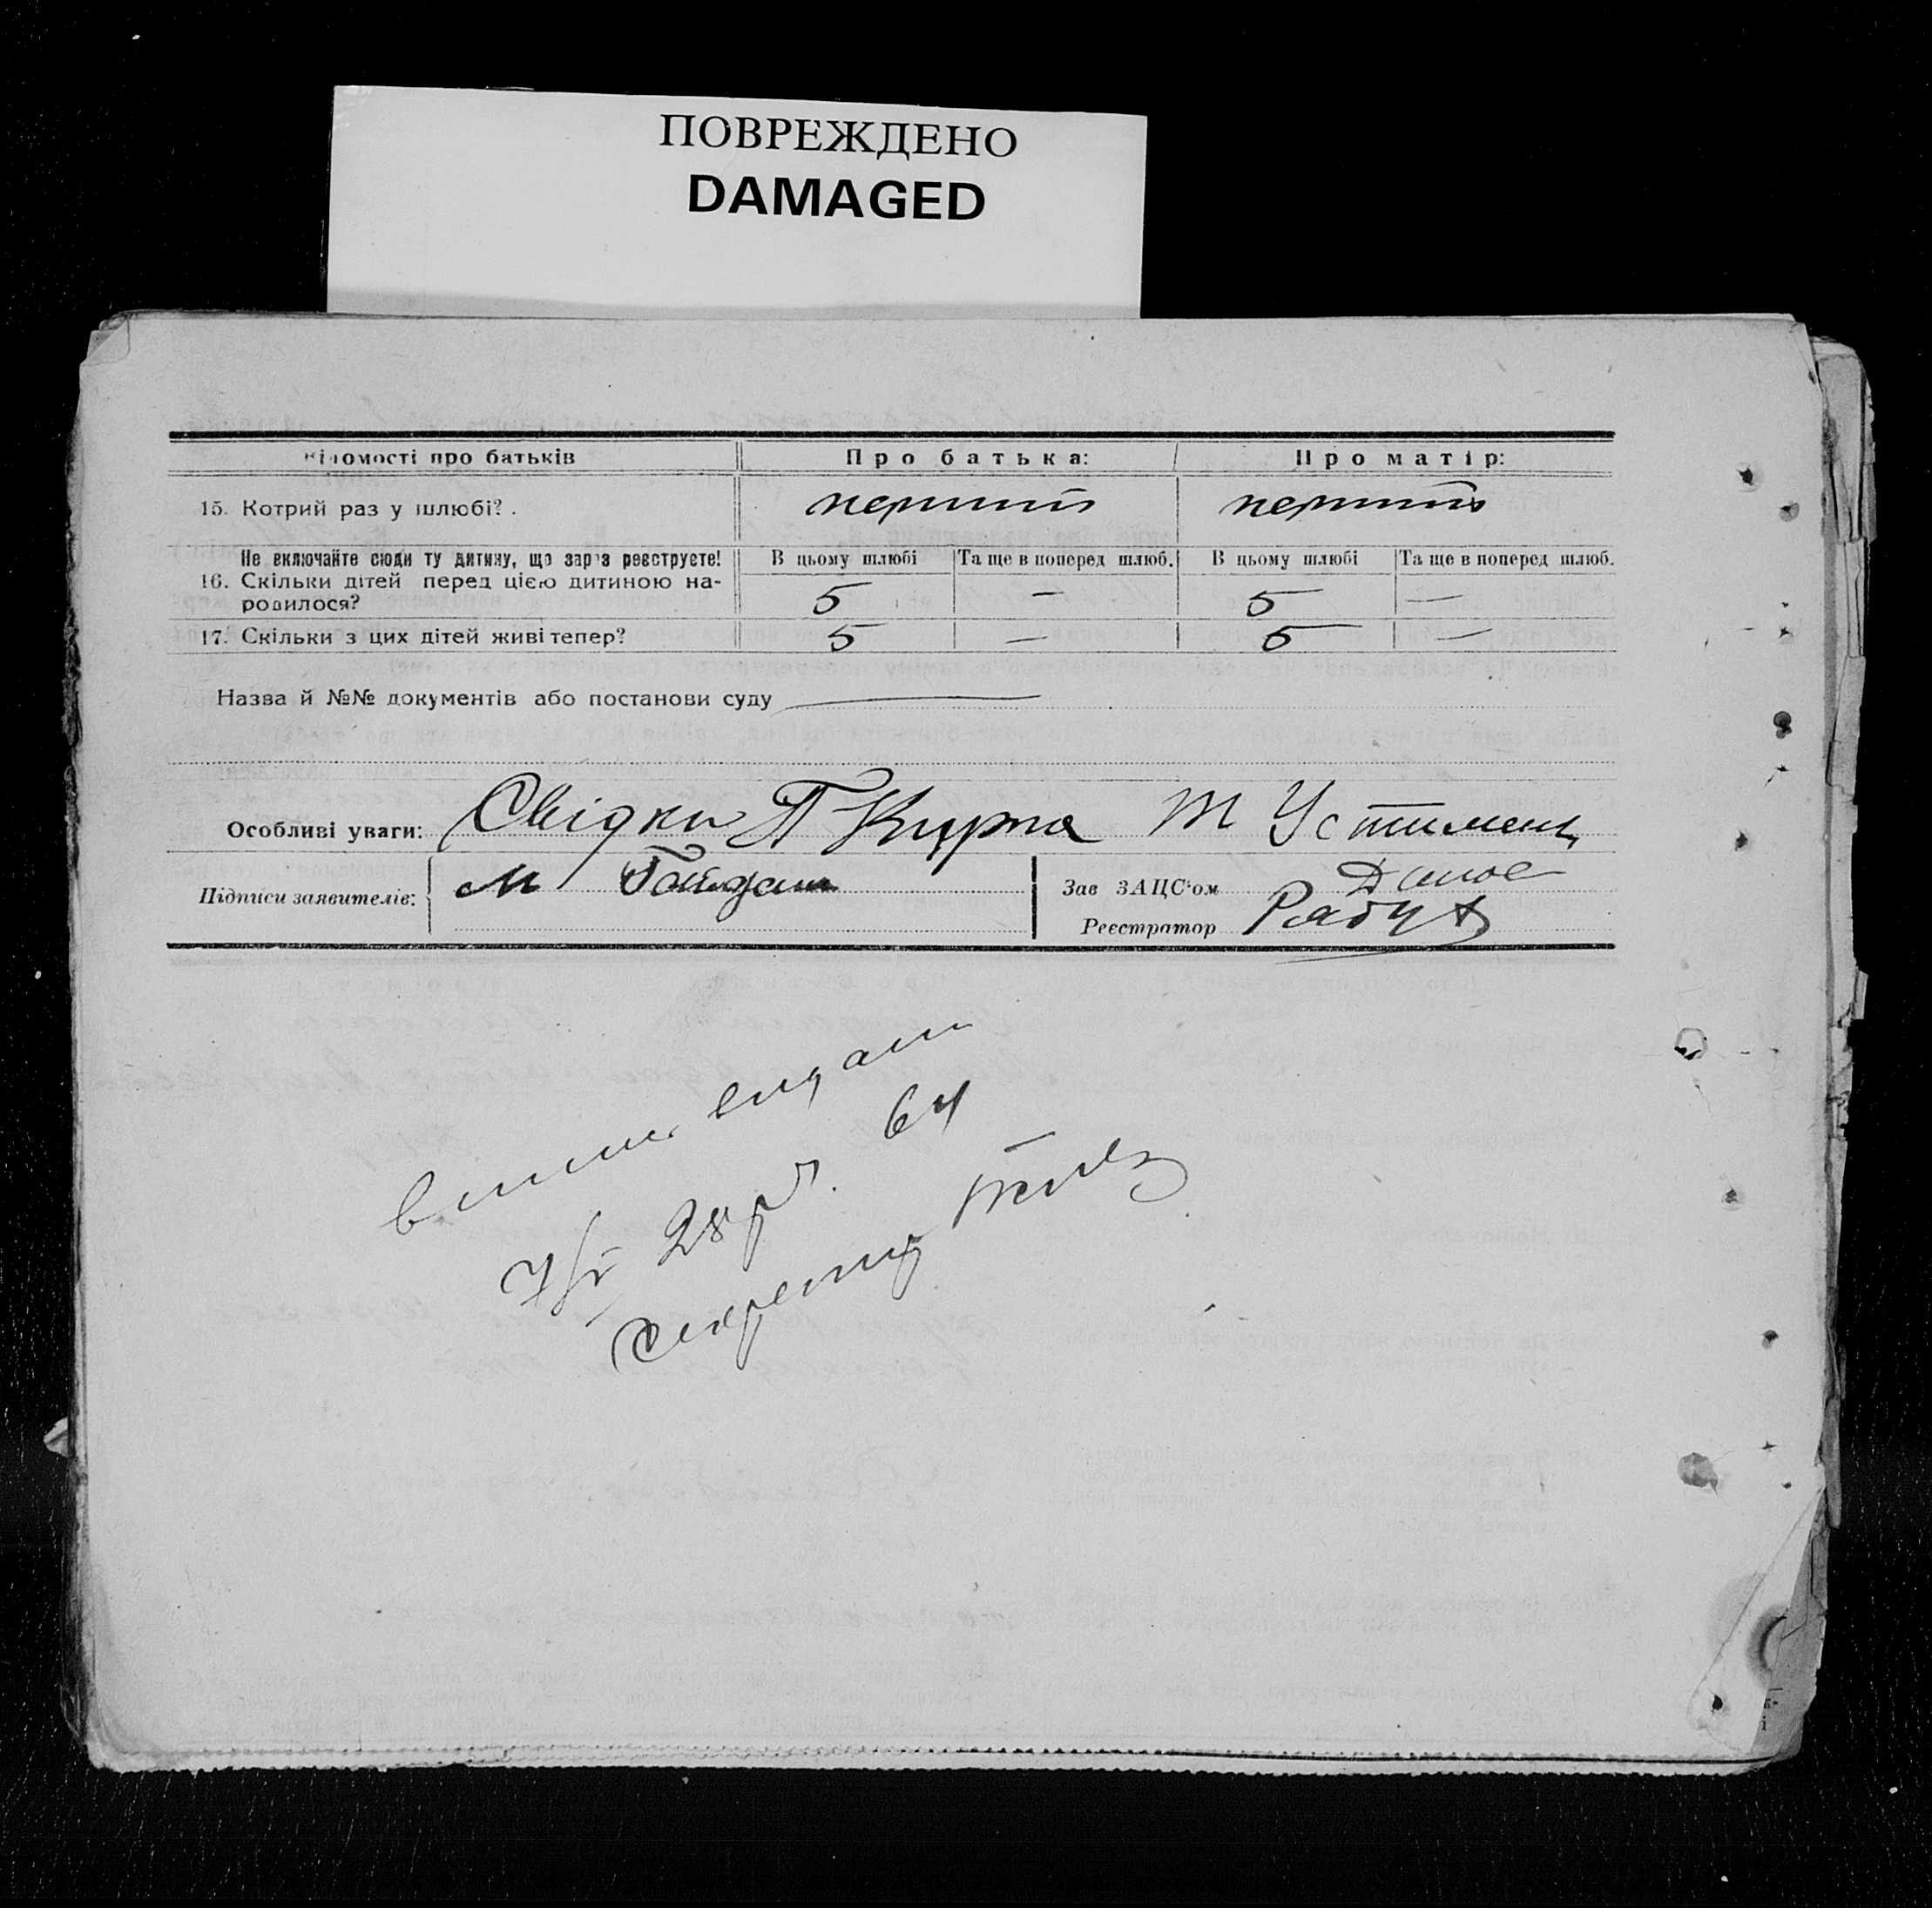 ПОВРЕЖДЕНО
DAMAGED
відомості про батьків Про батька: Про матір:
15. Котрий раз у шлюбі? . перший перший
Не включайте сюди ту дитину, що зараз реєструєте! В цьому шлюбі Та ще в поперед шлюб. В цьому шлюбі Та ще в поперед шлюб.
16. Скільки дітей перед цією дитиною на-
родилося? 5 — 5 —
17. Скільки з цих дітей живі тепер? 5 — 5 —
Назва й №№ документів або постанови суду —
Особливі уваги: Свідки П Курта Т Устимен
Підписи заявителів: М Гайдаш Зав ЗАЦС'ом
Реєстратор Рябуха
видан
28 р. 64
Секретар